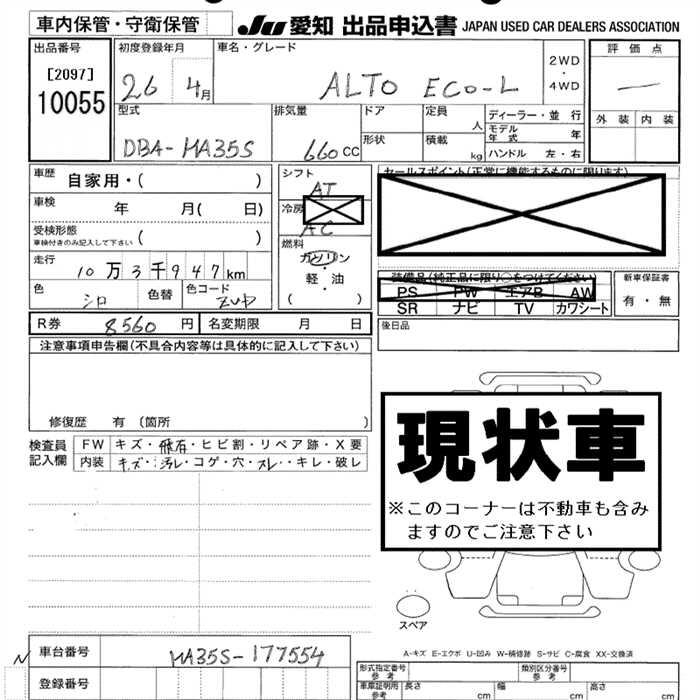 車内保管・守衛保管 JU 愛知 出品申込書 JAPAN USED CAR DEALERS ASSOCIATION
出品番号 初度登録年月 車名・グレード 2WD・4WD 評価点
[2097] 26 4月 ALTO ECO-L —
10055 外装 内装
型式 排気量 ドア 定員 人 ディーラー・並行
DBA-HA35S 660CC 形状 積載 kg モデル年式 年
ハンドル 左・右
車歴 自家用・( ) シフト AT セールスポイント(正常に機能するものに限ります)
車検 年 月( 日) 冷房 AC
受検形態 車検付きのみ記入して下さい ( ) 燃料 ガソリン・軽・油 ( )
走行 10万3千947km 装備品(純正品に限り○をつけてください) 新車保証書
色 シロ 色替 色コード ZUP PS PW エアB AW 有・無
SR ナビ TV カワシート
R券 8560円 名変期限 月 日 後日品
注意事項申告欄(不具合内容等は具体的に記入して下さい)
修復歴 有 (箇所 )
現状車
※このコーナーは不動車も含みますのでご注意下さい
検査員記入欄 FW キズ・飛石・ヒビ割・リペア跡・X要
内装 キズ・汚レ・コゲ・穴・スレ・キレ・破レ
スペア
A-キズ E-エクボ U-凹み W-補修跡 S-サビ C-腐食 XX-交換済
N 車台番号 HA35S-177554
登録番号
形式指定番号 参考 類別区分番号 参考
車庫証明用 参考 長さ cm 幅 cm 高さ cm